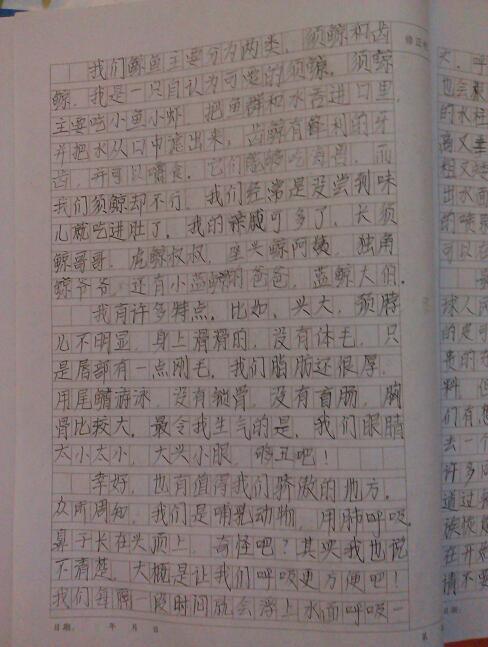 修正栏
我们鲸鱼主要分为两类，须鲸和齿
鲸。我是一只自认为可爱的须鲸。须鲸
主要吃小鱼小虾，把鱼群和水吞进口里，
并把水从口中滤出来，齿鲸有锋利的牙
齿，并可以嚼食。它们能够吃海兽。而
我们须鲸却不行。我们经常是没尝到味
儿就吃进肚了。我的亲戚可多了，长须
鲸哥哥，虎鲸叔叔，座头鲸阿姨，独角
鲸爷爷，还有小蓝鲸的爸爸，蓝鲸大伯。
我有许多特点。比如，头大，颈脖
儿不明显，身上滑滑的，没有体毛，只
是唇部有一点刚毛。我们脂肪还很厚，
用尾鳍游泳，没有锁骨，没有盲肠，胸
骨比较大。最令我生气的是，我们眼睛
太小太小，大头小眼，够丑吧！
幸好，也有值得我们骄傲的地方。
众所周知，我们是哺乳动物，用肺呼吸。
鼻子长在头顶上，奇怪吧？其实我也说
不清楚，大概是让我们呼吸更方便吧！
我们每隔一段时间就会浮上水面呼吸一
日期： 年 月 日
第
大，呼
也会
的水柱
高又
粗又
出水面
的喷
可以
球人
的是
贵的
料，但
们有
去一个
许多
通过
族
在开
请不要
日期：